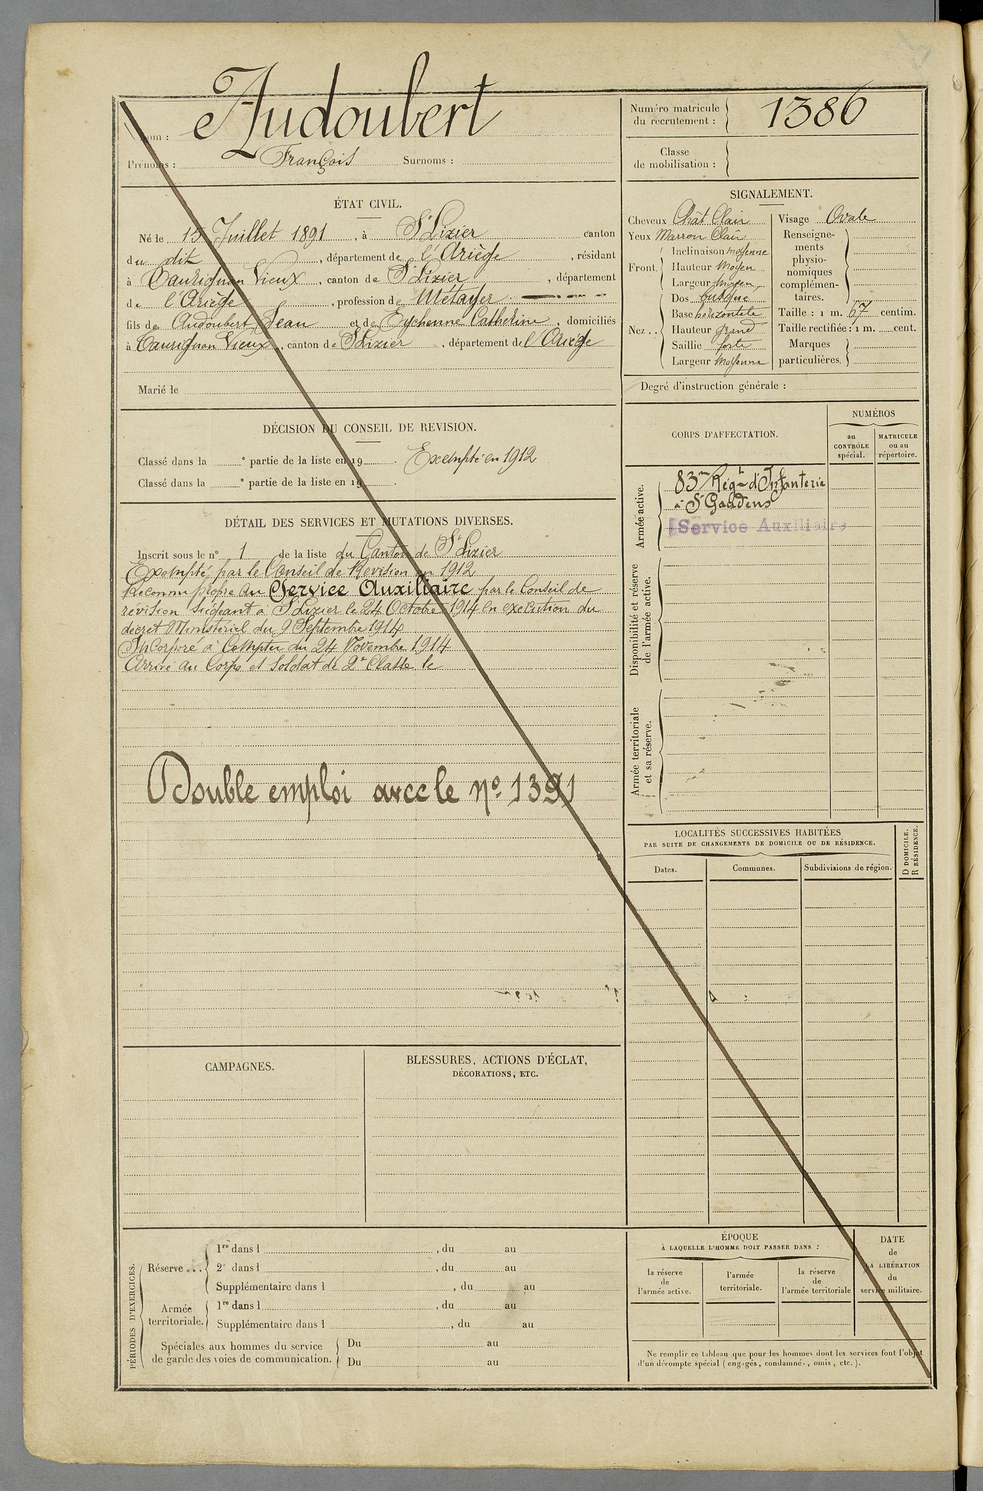 Nom : Audoubert
Prénoms : François Surnoms :
Numéro matricule du recrutement : 1386
Classe de mobilisation :
ÉTAT CIVIL.
Né le 15 Juillet 1891, à St Lizier canton
du dit, département de l'Ariège, résidant
à Caurignan Vieux, canton de St Lizier, département
de l'Ariège, profession de Métayer
fils de Audoubert Jean et de Eychenne Catherine, domiciliés
à Caurignan Vieux, canton de St Lizier, département de l'Ariège
Marié le
SIGNALEMENT.
Cheveux Chât Clair
Yeux Marron Clair
Front. Inclinaison moyenne
Hauteur Moyen
Largeur Moyen
Nez . . Dos busqué
Base horizontale
Hauteur grand
Saillie forte
Largeur Moyenne
Visage Ovale
Renseignements physionomiques complémentaires.
Taille : 1 m. 67 centim.
Taille rectifiée : 1 m. cent.
Marques particulières.
Degré d'instruction générale :
DÉCISION DU CONSEIL DE REVISION.
Classé dans la e partie de la liste en 19 . Exempté en 1912
Classé dans la e partie de la liste en 19 .
DÉTAIL DES SERVICES ET MUTATIONS DIVERSES.
Inscrit sous le n° 1 de la liste du Canton de St Lizier
Exempté par le Conseil de Révision en 1912
Reconnu propre au Service Auxiliaire par le Conseil de
révision siégeant à St Lizier le 24 Octobre 1914 en exécution du
décret Ministériel du 9 Septembre 1914
Incorporé à Compter du 24 Novembre 1914
Arrivé au Corps et Soldat de 2e Classe le
Double emploi avec le N° 1391
CORPS D'AFFECTATION.
NUMÉROS
au CONTRÔLE spécial.
MATRICULE ou au répertoire.
Armée active.
83me Régt d'Infanterie
à St Gaudens
Service Auxiliaire
Disponibilité et réserve de l'armée active.
Armée territoriale et sa réserve.
LOCALITÉS SUCCESSIVES HABITÉES
PAR SUITE DE CHANGEMENTS DE DOMICILE OU DE RÉSIDENCE.
Dates.
Communes.
Subdivisions de région.
D DOMICILE.
R RÉSIDENCE.
CAMPAGNES.
BLESSURES, ACTIONS D'ÉCLAT,
DÉCORATIONS, ETC.
PÉRIODES D'EXERCICES.
Réserve . . . 1re dans l , du au
2e dans l , du au
Supplémentaire dans l , du au
Armée territoriale. 1re dans l , du au
Supplémentaire dans l , du au
Spéciales aux hommes du service de garde des voies de communication. Du au
Du au
ÉPOQUE
À LAQUELLE L'HOMME DOIT PASSER DANS :
la réserve de l'armée active.
l'armée territoriale.
la réserve de l'armée territoriale
DATE de LA LIBÉRATION du service militaire.
Ne remplir ce tableau que pour les hommes dont les services font l'objet
d'un décompte spécial (engagés, condamnés, omis, etc.).